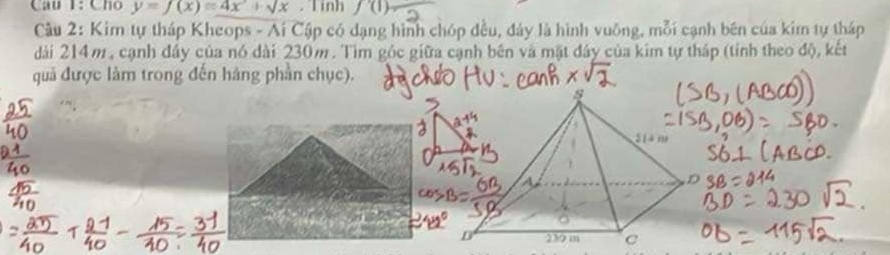 Câu 1: Cho y = f(x) = 4x + √x . Tính f'(1).
Câu 2: Kim tự tháp Kheops - Ai Cập có dạng hình chóp đều, đáy là hình vuông, mỗi cạnh bên của kim tự tháp
dài 214m, cạnh đáy của nó dài 230m. Tìm góc giữa cạnh bên và mặt đáy của kim tự tháp (tính theo độ, kết
quả được làm trong đến hàng phần chục).
chéo HV: canh x √2
25/40
21/40
15/40
= 25/40 + 21/40 - 15/40 = 31/40
S
214
O
B
cosB = OB/SB
S
214 m
A
D
O
B
230 m
C
(SB, (ABCD))
= (SB, OB) = SBO.
SO ⊥ (ABCD.
SB = 214
BD = 230 √2.
OB = 115√2.